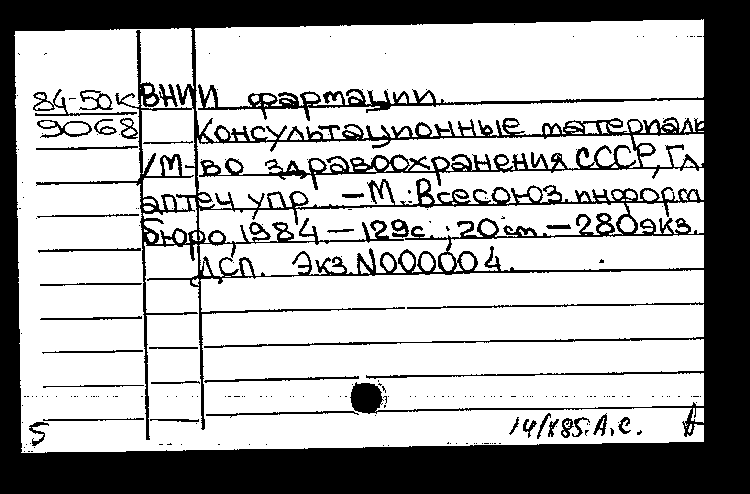 84-50к ВНИИ фармации.
9068 Консультационные материалы
/М-во здравоохранения СССР, Гл.
аптеч. упр. – М.: Всесоюз. информ
бюро, 1984. – 129с.; 20см. – 280экз.
ДСП. Экз.N000004.
14/X85. А.С.
5